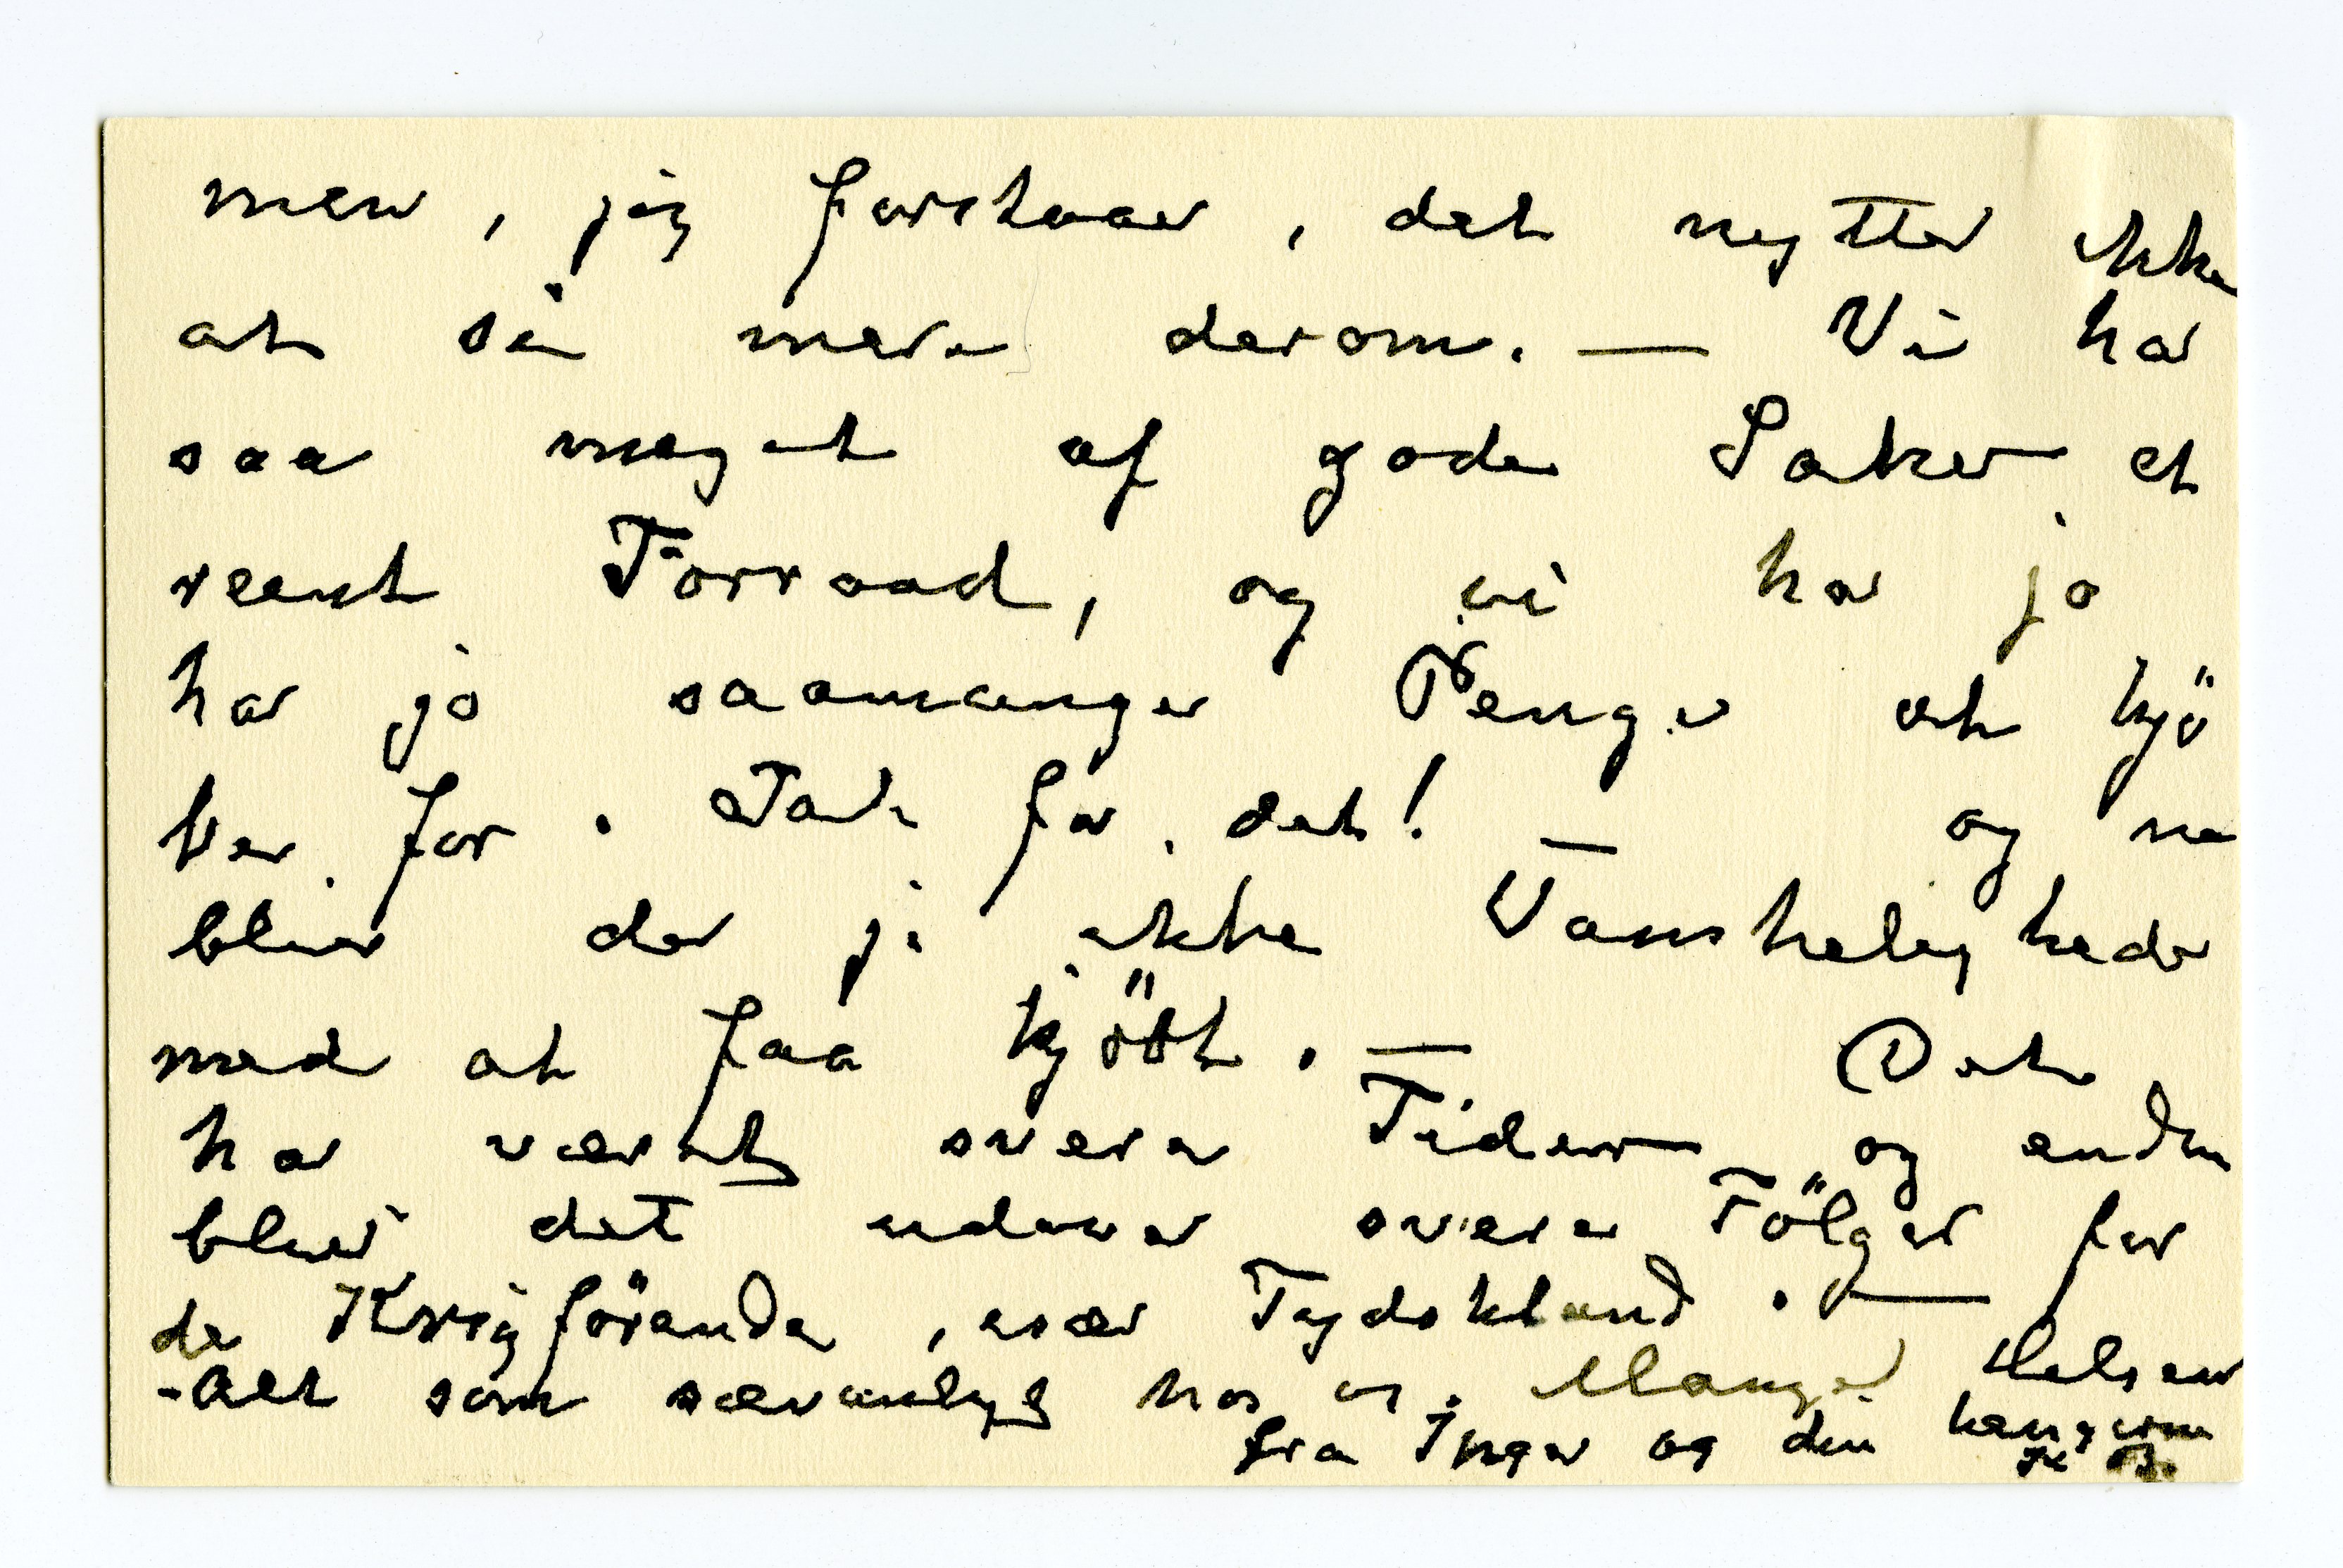 men, jeg forstaar, det nytter ikke
at si mere derom. — Vi har
saa meget af gode Saker et
reent Forraad, og vi har jo
har jo saamange Penge at kjö
ber for. Tak for det! — og nu
bliver der jo ikke Vanskeligheder
med at faa kjöbt. — Det
har været svere Tider og endnu
bliver det udover svere Fölger for
de Krigförende, især Tydskland. —
- Alt som sævanlig hos os. Mange Helsen
fra Inger og din hengivne